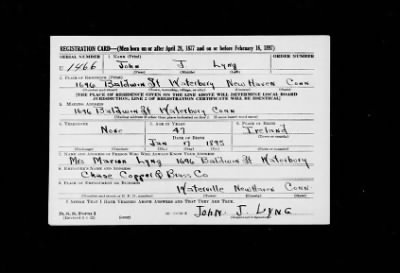 REGISTRATION CARD—(Men born on or after April 28, 1877 and on or before February 16, 1897)
SERIAL NUMBER 1. NAME (Print) ORDER NUMBER
U 1466 John J Lyng
(First) (Middle) (Last)
2. PLACE OF RESIDENCE (Print)
1696 Baldwin St Waterbury New Haven Conn
(Number and street) (Town, township, village, or city) (County) (State)
[THE PLACE OF RESIDENCE GIVEN ON THE LINE ABOVE WILL DETERMINE LOCAL BOARD
JURISDICTION; LINE 2 OF REGISTRATION CERTIFICATE WILL BE IDENTICAL]
3. MAILING ADDRESS
1696 Baldwin St Waterbury Conn
[Mailing address if other than place indicated on line 2. If same insert word same]
4. TELEPHONE 5. AGE IN YEARS 6. PLACE OF BIRTH
None 47 Ireland
DATE OF BIRTH
Jan 17 1895
(Mo.) (Day) (Yr.)
7. NAME AND ADDRESS OF PERSON WHO WILL ALWAYS KNOW YOUR ADDRESS
Mrs Marion Lyng 1696 Baldwin St Waterbury
8. EMPLOYER'S NAME AND ADDRESS
Chase Copper & Brass Co
9. PLACE OF EMPLOYMENT OR BUSINESS
Waterville New Haven Conn
(Number and street or R. F. D. number) (Town) (County) (State)
I AFFIRM THAT I HAVE VERIFIED ABOVE ANSWERS AND THAT THEY ARE TRUE.
D. S. S. Form 1
John J. Lyng